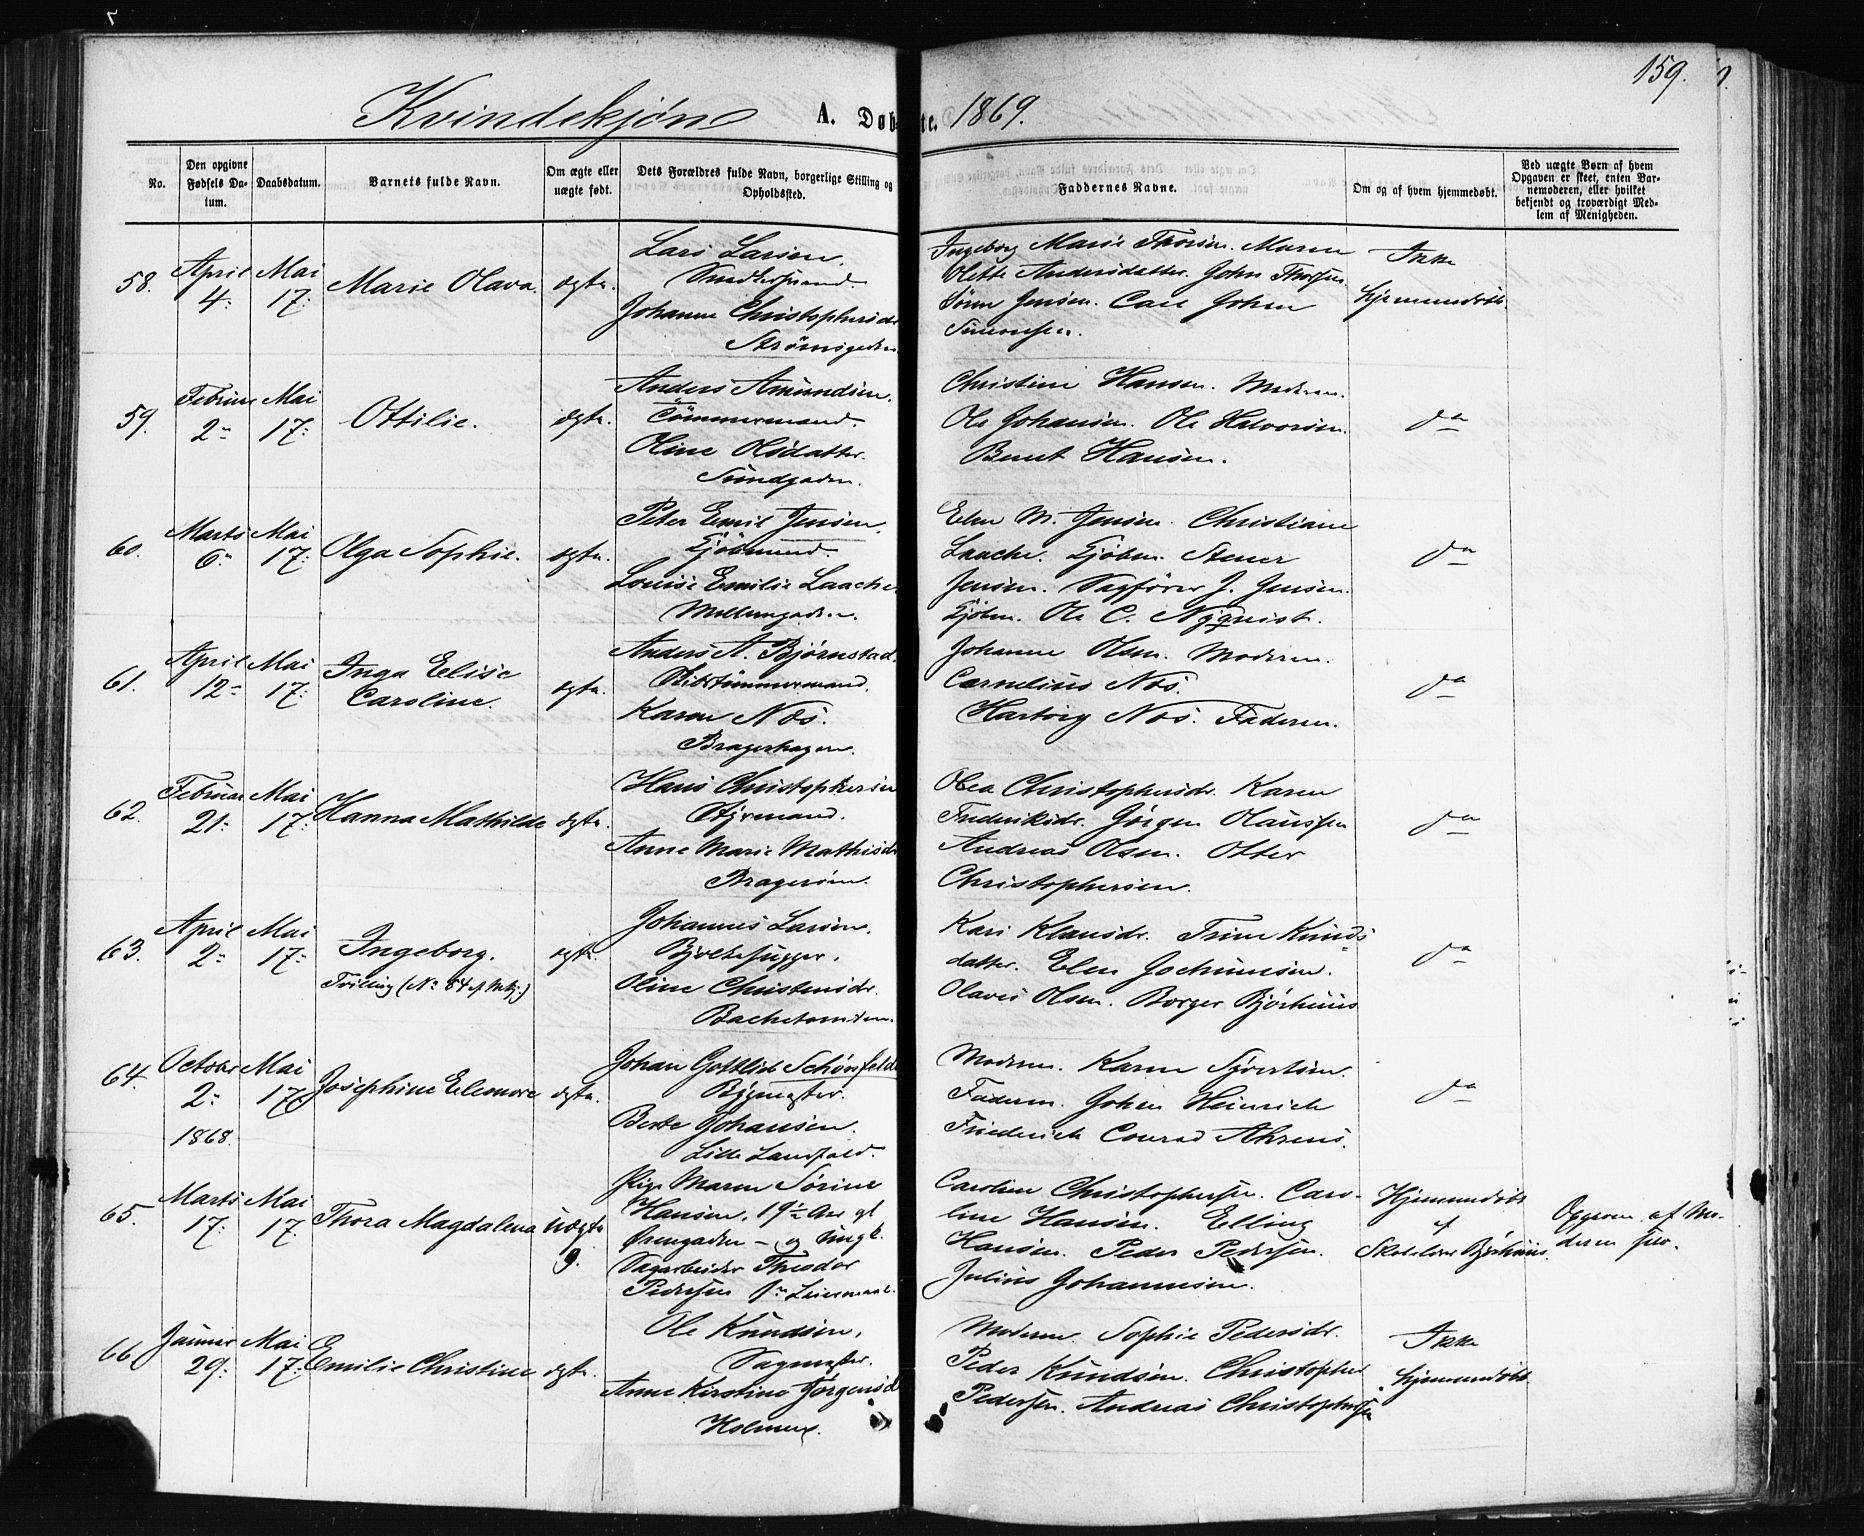 159.
Kvindekjøn A. Døbte. 1869.
No.
Den opgivne Fødsels Datum.
Daabsdatum.
Barnets fulde Navn.
Om ægte eller uægte født.
Dets Forældres fulde Navn, borgerlige Stilling og Opholdssted.
Faddernes Navne.
Om og af hvem hjemmedøbt.
Ved uægte Børn af hvem Opgaven er skeet, enten Barnemoderen, eller hvilket bekjendt og troværdigt Medlem af Menigheden.
58. April 4. Mai 17. Marie Olava. ægte.
Lars Larsen.
Johanne Christophersdr
Strømsgaden
Ingeborg Marie Thorsen. Maren
Olette Andersdatter. John Thorsen
Sørn Jensen. Carl Johan
Simonsen.
Ikke
hjemmedøbt
59. Februar 2. Mai 17. Ottilie. ægte.
Anders Amundsen.
Tømmermand.
Oline Olsdatter.
Sundgaden.
Christine Hansen. Moderen.
Ole Johansen. Ole Halvorsen.
Bernt Hansen.
do
60. Marts 6. Mai 17. Olga Sophie. ægte.
Peter Emil Jensen.
Kjøbmand.
Louise Emilie Laache
Mellemgaden.
Elen M. Jensen. Christiane
Laache. Kjøbm. Stener
Jensen. Sagfører J. Jensen.
Kjøbm. Ole C. Nyquist.
do
61. April 12. Mai 17. Inga Elise
Caroline. ægte.
Anders A. Bjørnstad.
Skibstømmermand.
Karen Nøs.
Bragerhagen.
Johanne Olsen. Moderen.
Cornelius Nøs.
Hartvig Nøs. Faderen.
do
62. Februar 21. Mai 17. Hanna Mathilde ægte.
Hans Christophersen
Styrmand.
Anne Marie Mathisdr
Bragerøen.
Olea Christophersdr. Karen
Frederiksdr. Jørgen Hanssen
Andreas Olsen. Otter
Christophersen.
do
63. April 2. Mai 17. Ingeborg. ægte.
Tvilling (No 84 af Mkj.)
Johannes Larsen.
Oline Christensdr.
Bachetomten.
Kari Klausdr. Trine Knuds
datter. Elen Jochumsen.
Olaves Olsen. Borger Bjørhuus
do
64. October 2. 1868. Mai 17. Josephine Eleonore ægte.
Johan Gottlieb Schønfeld
Bygmester.
Berte Johansen.
Lille Landfald.
Moderen. Karen Syvertsen.
Faderen. Johan Heinrich
Friederich Conrad Ahrens.
do
65. Marts 17. Mai 17. Thora Magdalena Uægte
9.
Pige Maren Sørine
Hansen, 19½ Aar gl
Ørengaden – og Ungk.
Sagarbeider Theodor
Pedersen 1ste Leiermaal.
Caroline Christophersen. Caro-
line Hansen. Elling
Hansen. Peder Pedersen.
Julius Johannesen.
Hjemmedøbt
af
Skolelærer Bjørhuus.
Opgaven af Mo-
deren selv.
66. Januar 29. Mai 17. Emilie Christine ægte.
Ole Knudsen,
Sagmester.
Anne Kirstine Jørgensd
Holmen.
Moderen. Sophie Pedersdr.
Peder Knudsen. Christopher
Pedersen. Andreas Christophersen
Ikke
hjemmedøbt